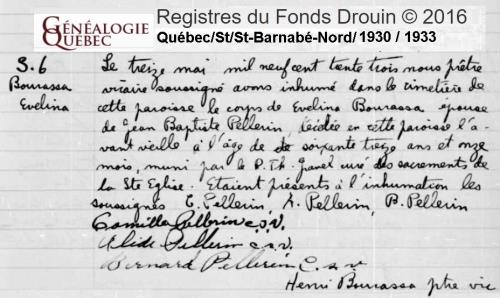 GÉNÉALOGIE QUÉBEC
Registres du Fonds Drouin © 2016
Québec/St/St-Barnabé-Nord/ 1930 / 1933
S. 6
Bourassa
Evelina
Le treize mai mil neuf cent trente trois nous prêtre
vicaire soussigné avons inhumé dans le cimetière de
cette paroisse le corps de Evelina Bourassa épouse
de Jean Baptiste Pellerin, décédée en cette paroisse l'a-
vant veille à l'âge de de soixante treize ans et onze
mois, muni par le P. Th. curé des sacrements de
la Ste Eglise. Etaient présents à l'inhumation les
soussignés C. Pellerin, A. Pellerin, B. Pellerin
Camille Pellerin c.s.v.
Alide Pellerin c.s.v.
Bernard Pellerin c.s.v
Henri Bourassa ptre vic